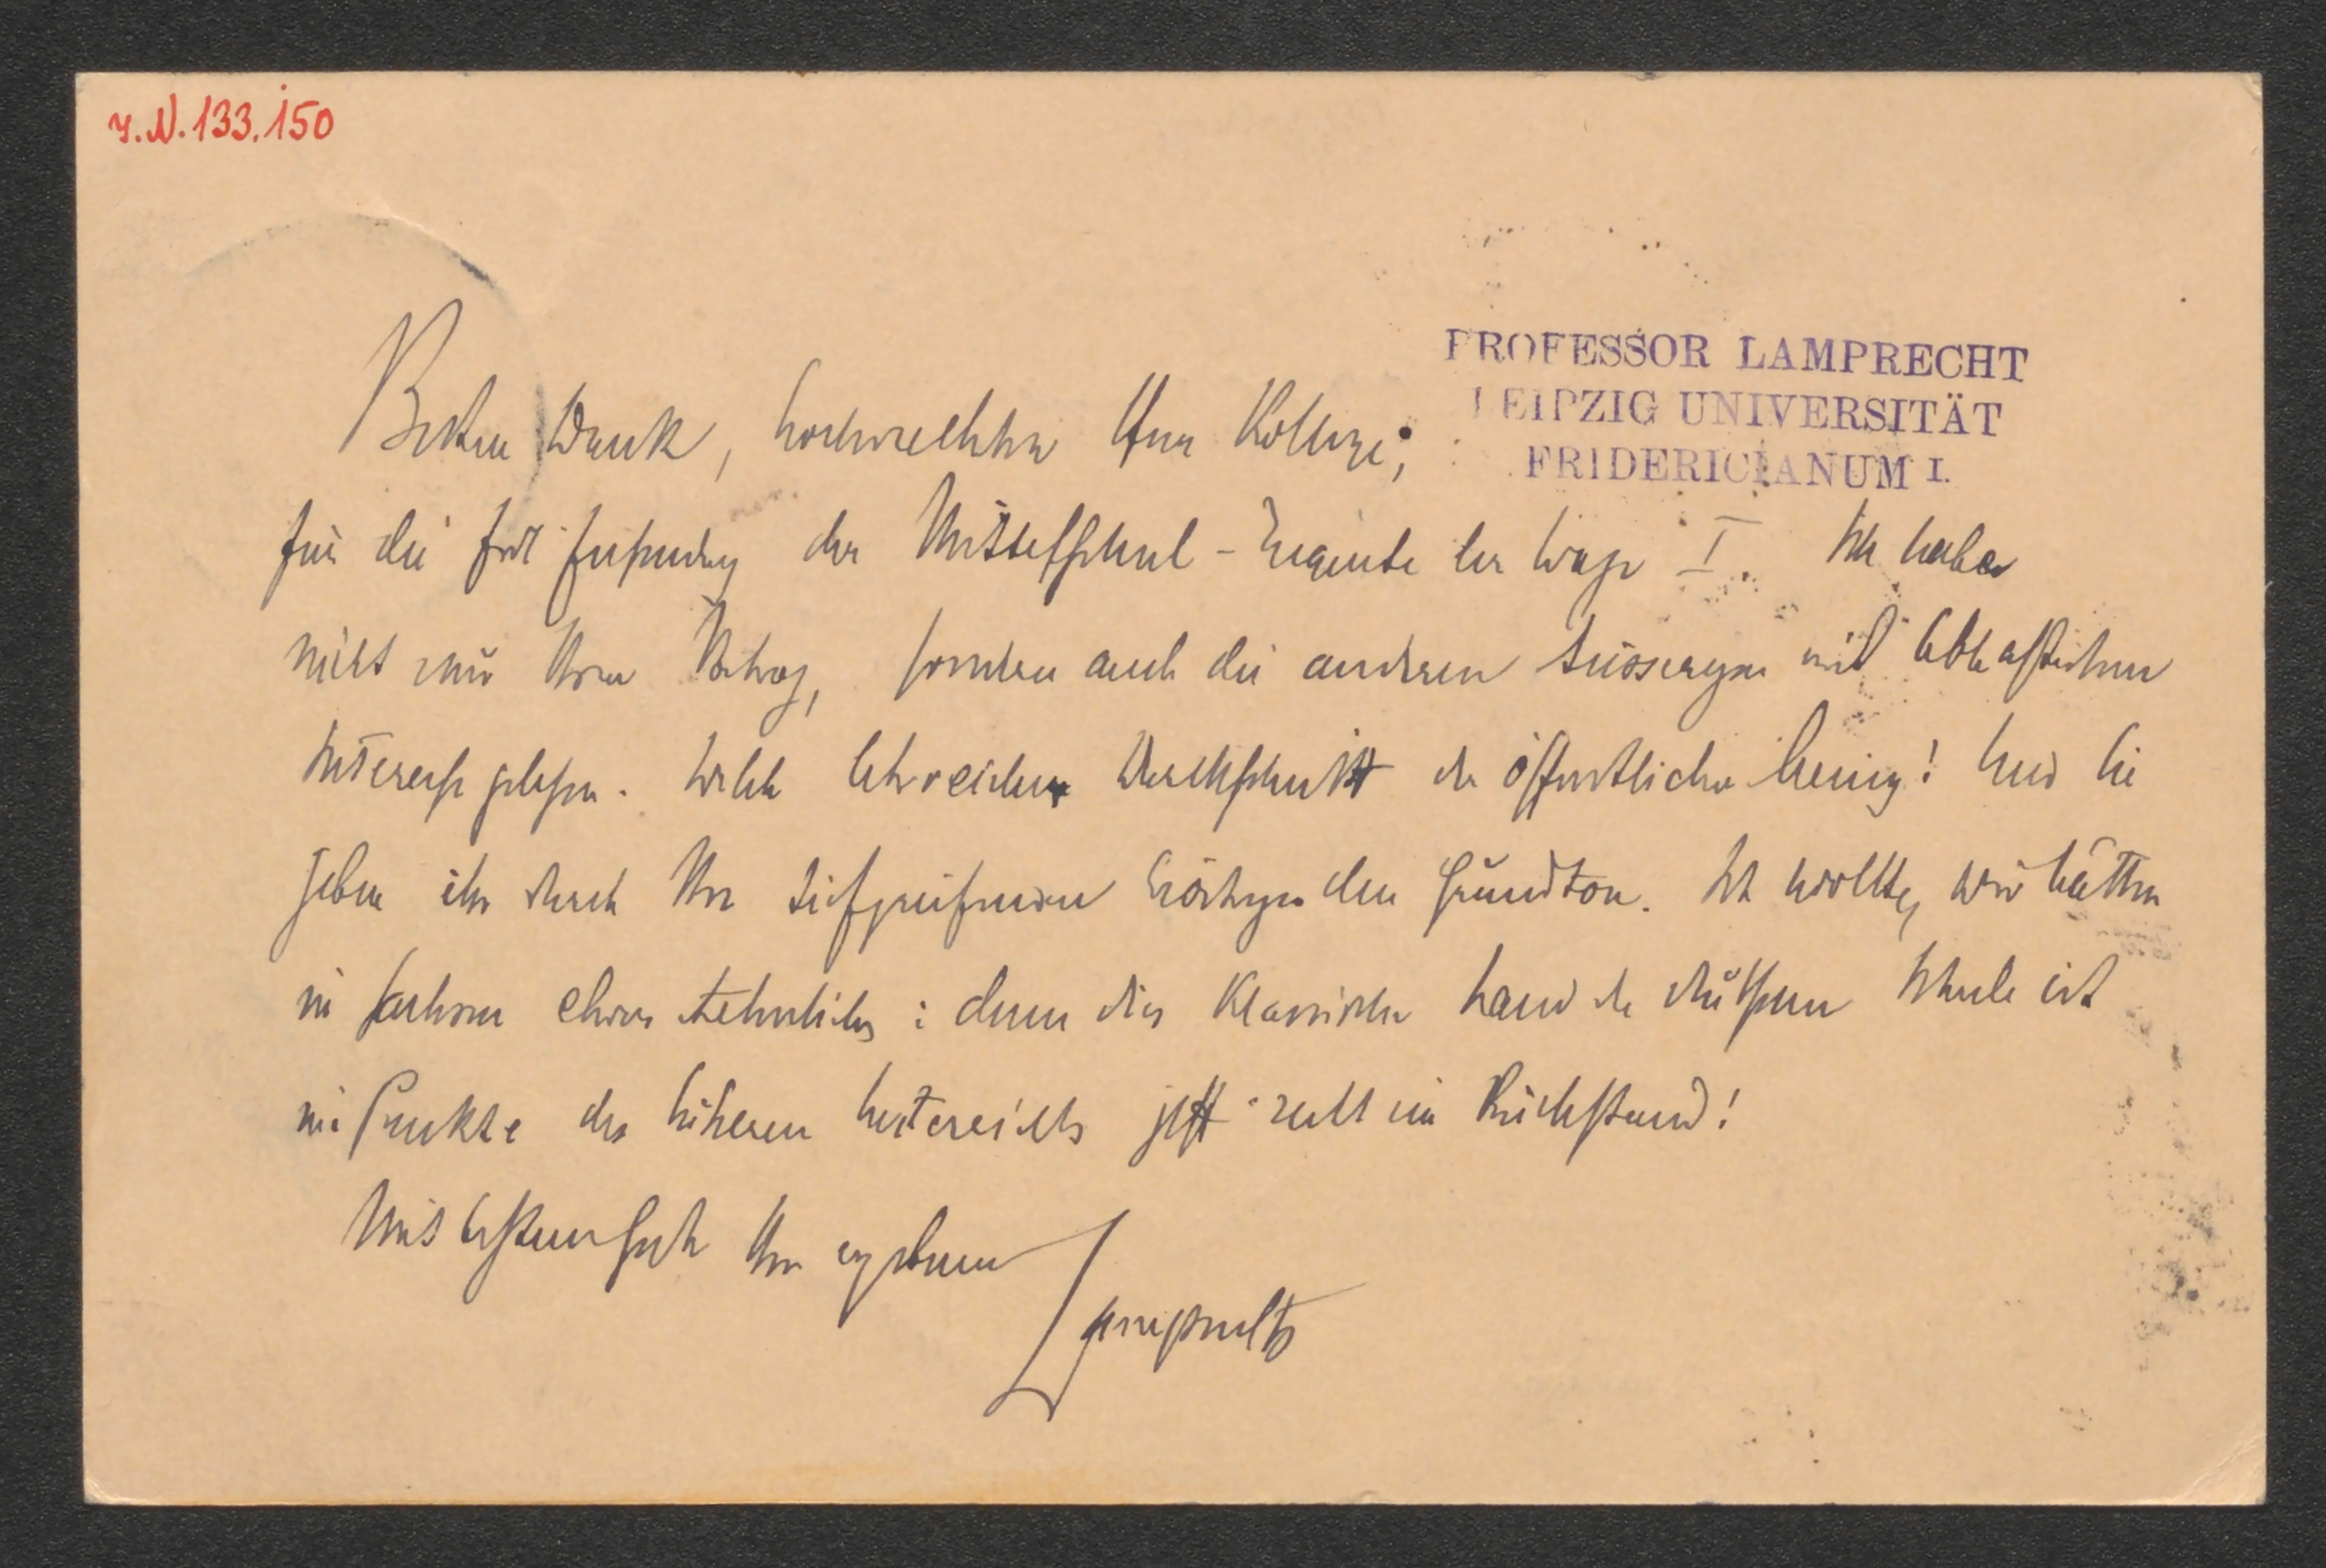 I.N. 133.150
PROFESSOR LAMPRECHT
LEIPZIG UNIVERSITÄT
FRIDERICIANUM I.
Besten Dank, hochverehrter Herr Kollege,
für die frdl Zusendung der Mittelschul-Enquete der Wage I. Ich habe
nicht nur Ihren Beitrag, sondern auch die anderen Äusserungen mit lebhaftestem
Interesse gelesen. Welch lehrreicher Durchschnitt der öffentlichen Meinung! Und Sie
geben ihr durch Ihre tiefgreifenden den Grundton. Ich wollte, wir hätten
in Sachsen etwas Aehnliches: denn dies klassische Land der deutschen Schule ist
im Punkte des höheren Unterrichts jetzt recht im Rückstand!
Mit bestem Gruß Ihr ergebener
Lamprecht